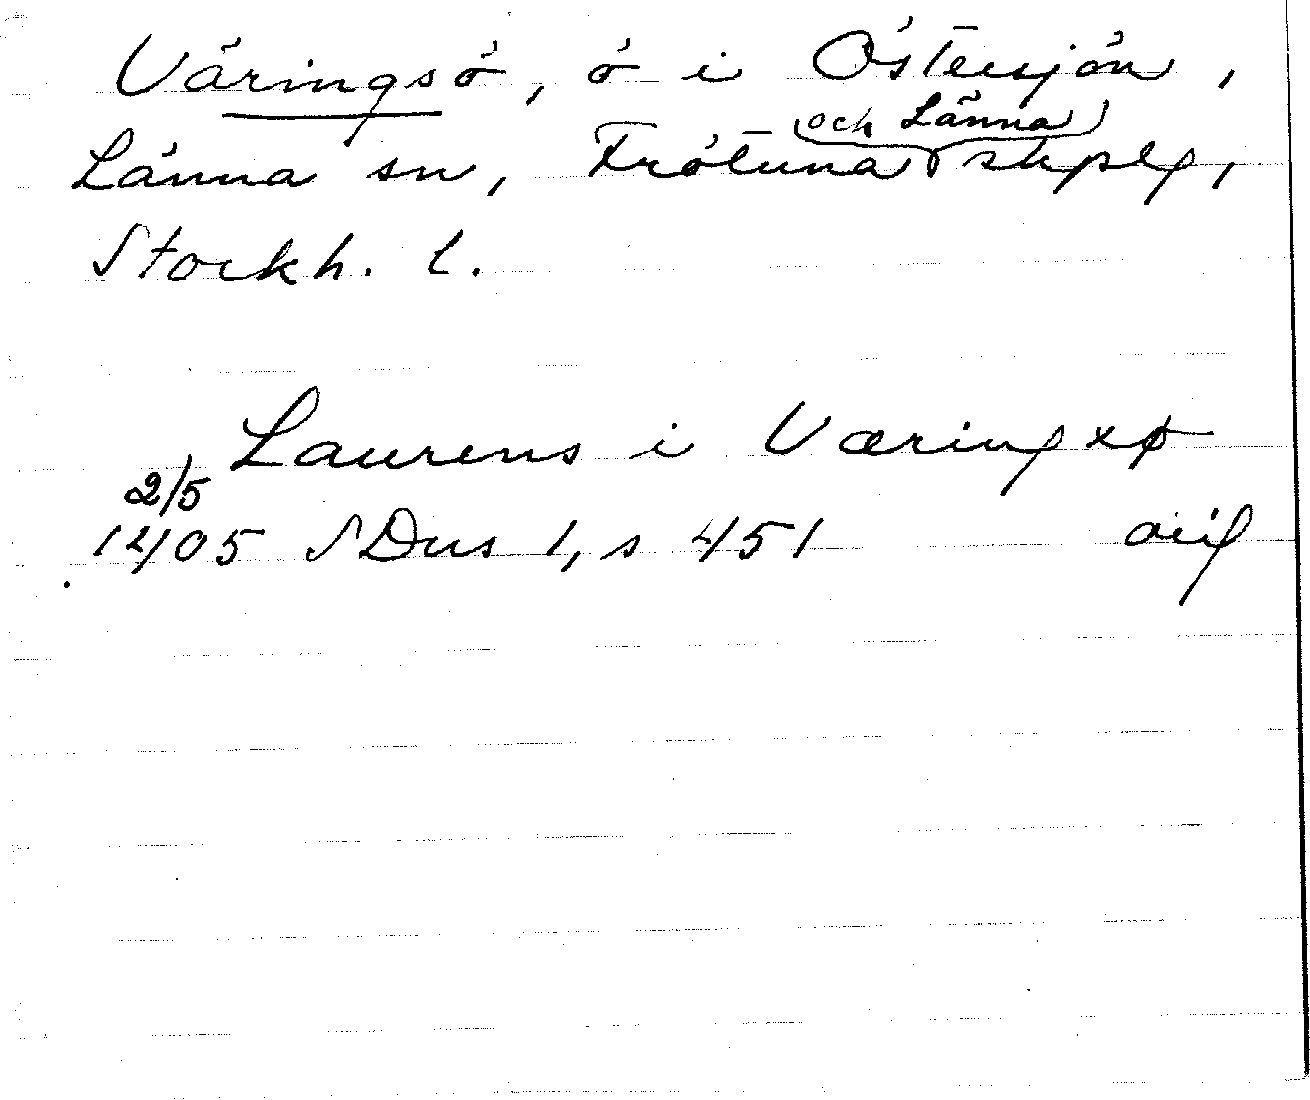 Väringsö, ö i Östersjön,
Länna sn, Frötuna och Länna skplg,
Stockh. l.
Laurens iVæringxø
2/5
1405 SDns 1, s 451 orig